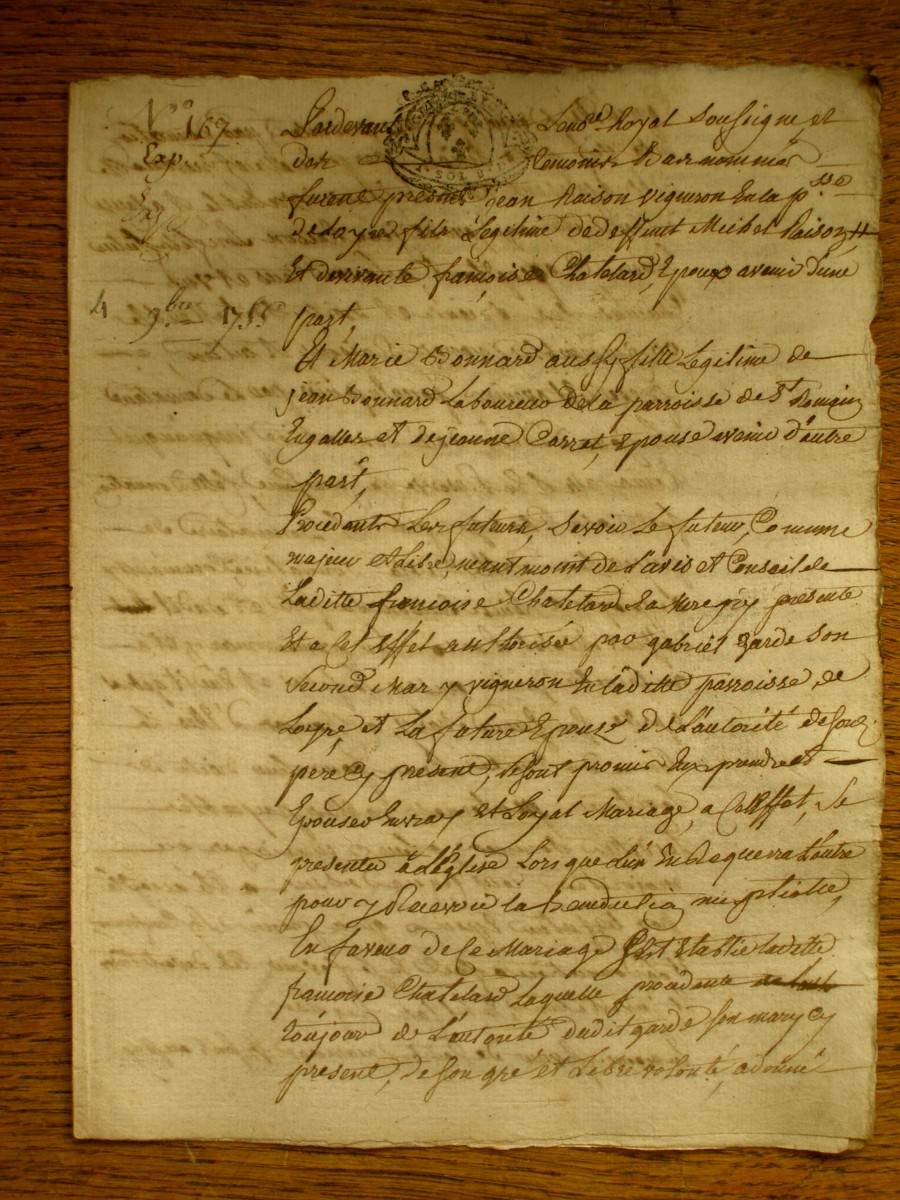 N.o 167
Exp.
4 9.bre 17
Pardevant Le no.re Royal Soussigné, et
des temoins Bas nommés
furent présens Jean Raison vigneron En la p.sse
de Loyre fils Légitime de deffunt Michel Raison,
Et de vivante françoise Chatelard, Epoux avenir d'une
part,
Et Marie Bonnard aussy fille Legitime de
jean Bonnard Laboureur de la parroisse de St Romain
Engallez et de jeanne Carret, Epouse avenir d'autre
part,
Procédants Les futurs, Savoir Le futeur, Comme
majeur et Libre, neantmoint de L'avis et Conseil de
Laditte françoise Chatelard Sa mere ycy presente
Et a Cet Effet authorisée par gabriel garde son
Second Mary vigneron En laditte parroisse, de
Loyre, et La future Epouse de L'autorité de son
pere Cy present, se sont promis Eux prendre et
Epouser En vray Et Loyal Mariage, a Cet Effet, se
presenter à L'Eglise Lors que L'un En Requerra L'autre
pour y Recevoir la benediction nuptialle,
En faveur de Ce Mariage Est Etablie laditte
francoise Chatelard Laquelle procedante
toujour de L'autorité dudit garde son mary Cy
present, de son gré et Libre volonté, a donné